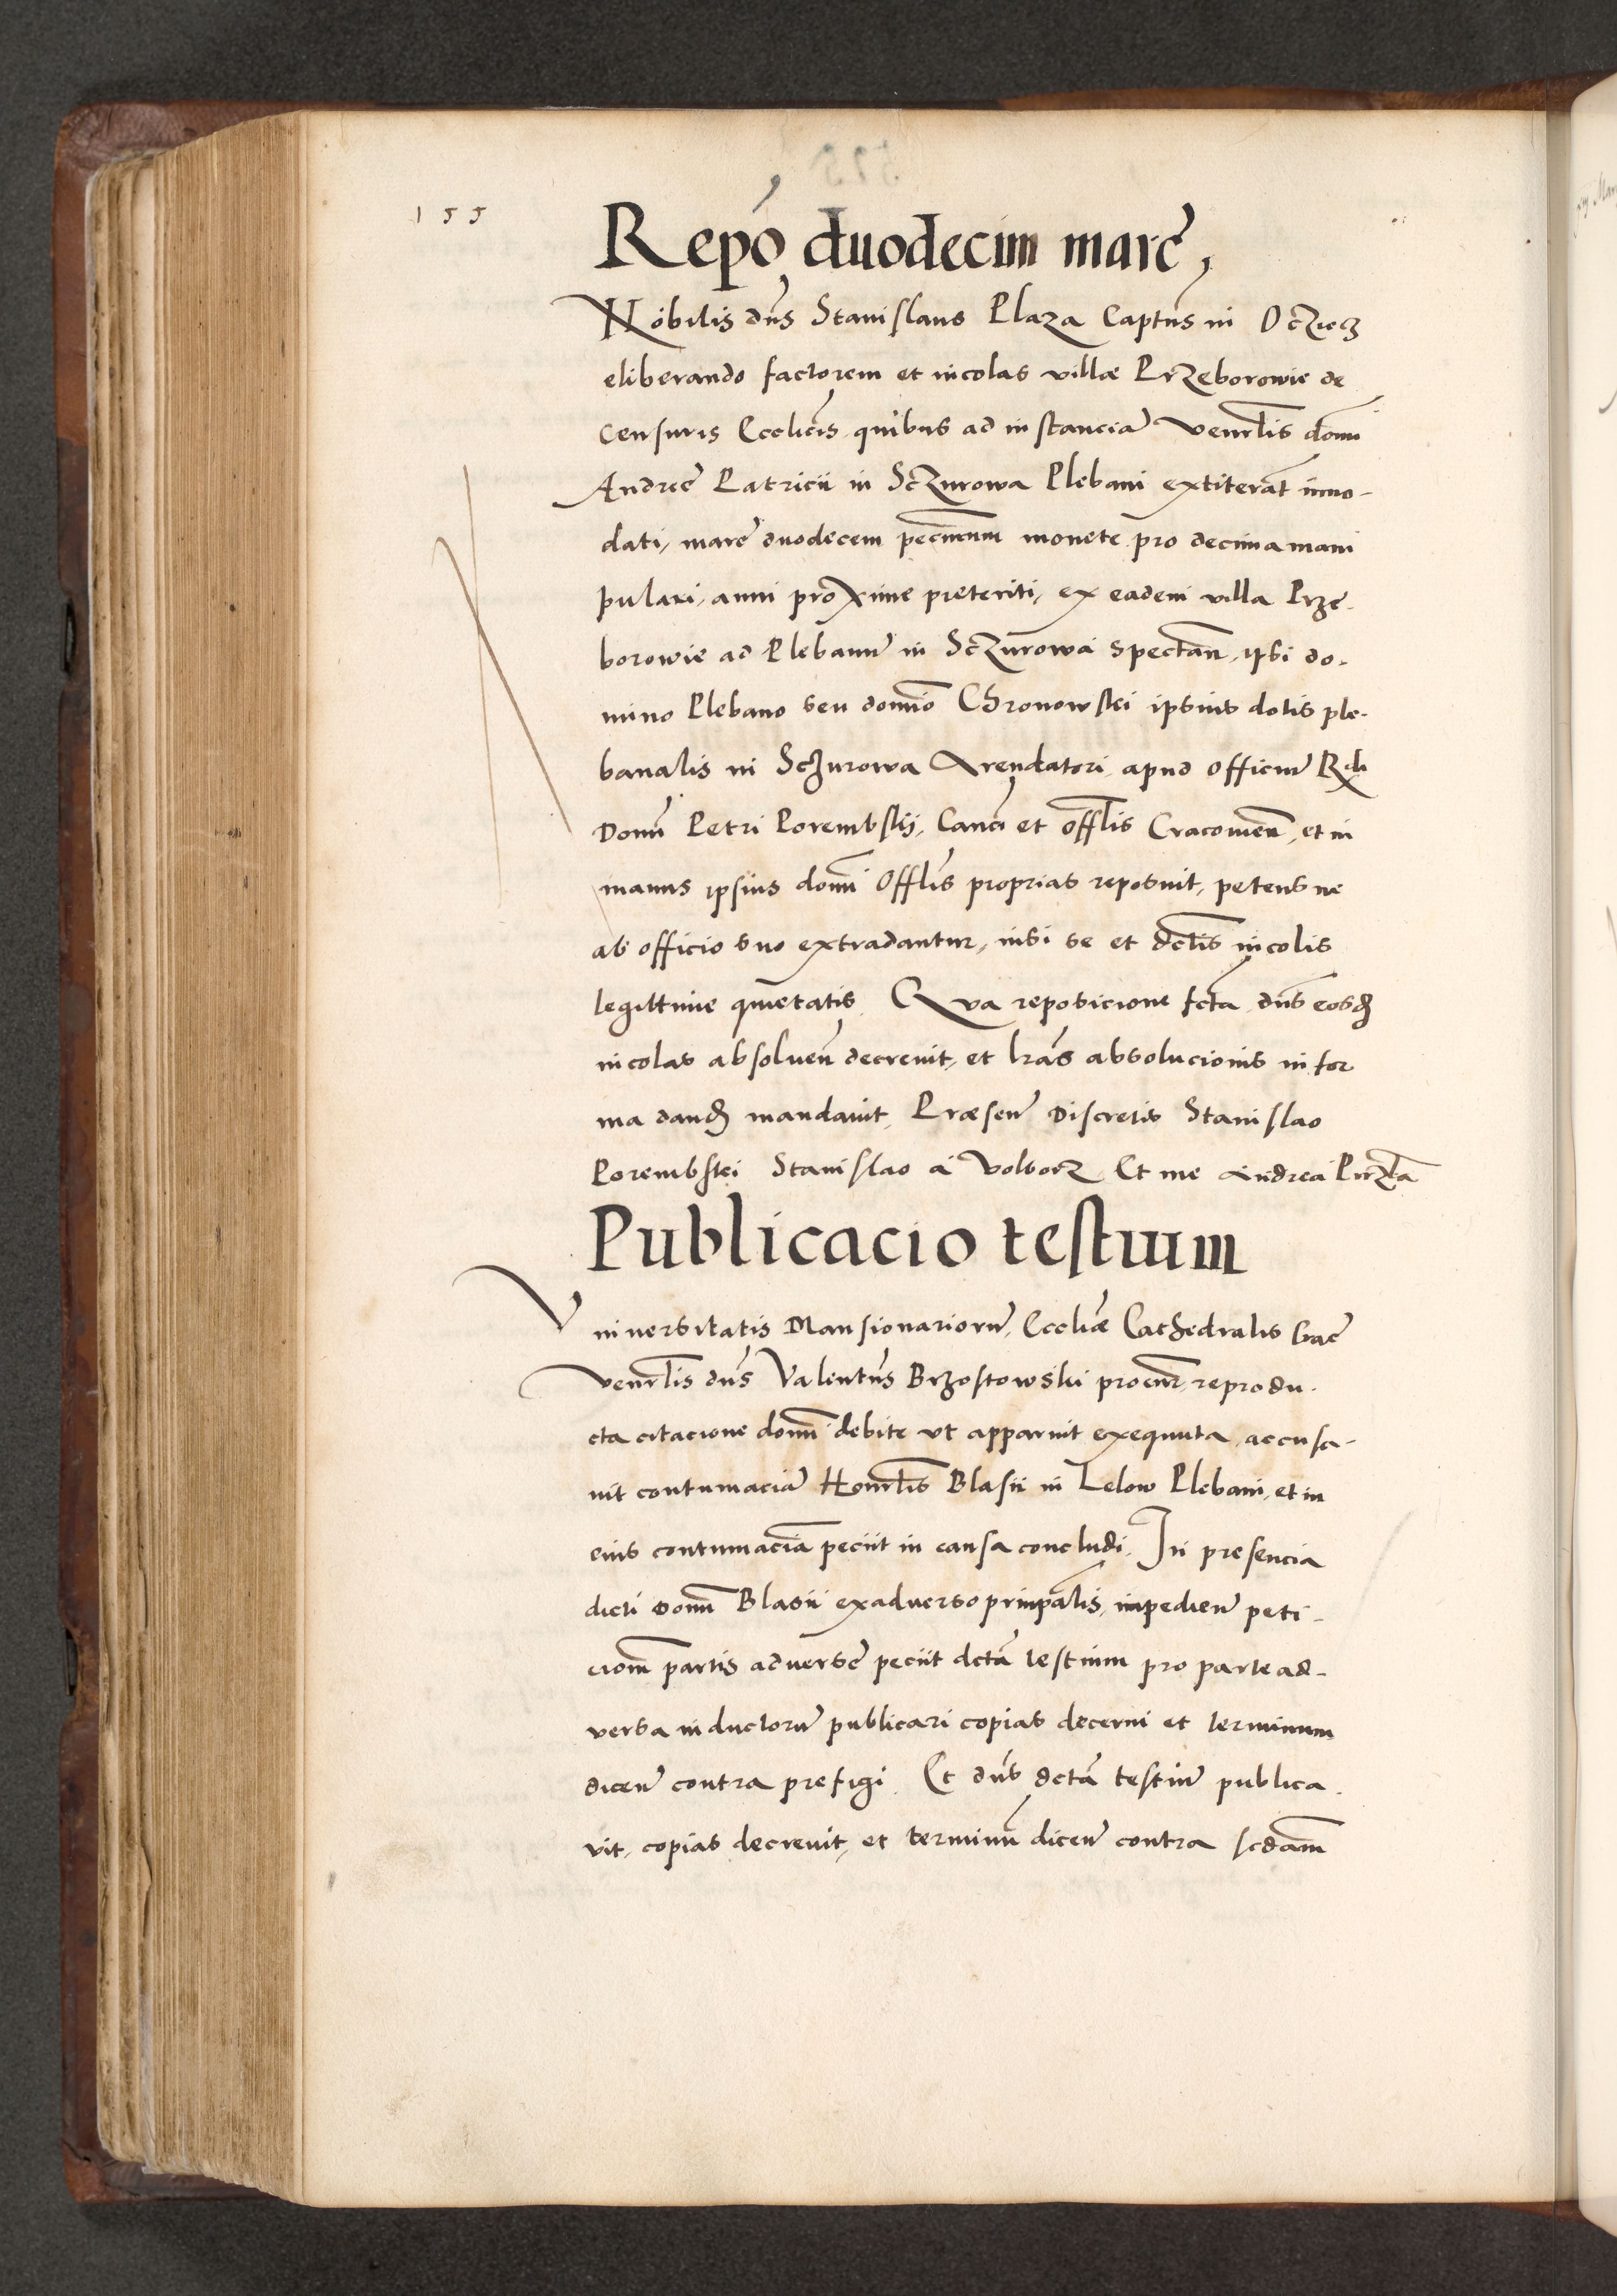 155
Repo duodecim marc
Nobilis dns Stanislaus Plaza Captns in Oczicz
eliberando factorem et incolas villæ Przeborowie de
censuris Ecclicis quibus ad instanciā venrlis domi
Andreę Patricii in Sczurowa Plebani extiterāt inno-
dati, marc duodecem pecuniarum monete pro decima mani
pulari, anni proxime preteriti, ex eadem villa Prze-
borowie ad Plebanū in Sczurowa spectan, ipsi do-
mino Plebano seu domio Chronowski ipsius dotis ple-
banalis in Sczurowa Arendatori apud officiū Rdi
Domi Petri Porembskij, Canci et offlis Cracovien, et in
manus ipsius domi Offlis proprias reposuit, petens ne
ab officio suo extradantur, nisi se et dictis incolis
legittime quietatis. Qua reposicione fcta, dns eosd
incolas absoluen decrevit, et lras absolucionis in for
ma dand mandavit, Præsen Discretis Stanislao
Porembski Stanislao a Volborz Et me Andrea
Publicacio testium
Universitatis Mansionariorū, Eccliæ Cathedralis Grac
venrlis dns Valentns Brzostowski procur, reprodu-
cta citacione domi debite ut apparuit exequuta, accusa-
vit contumaciā Honrlis Blasii in Lelow Plebani, et in
eius contumaciā peciit in causa concludi. In presencia
dicti Domi Blasii ex adverso prinpalis, impedien peti-
ciom partis adversę peciit dcta testium pro parte ad-
versa inductorū publicari copias decerni et terminum
dicen contra prefigi. Et dns dcta testiū publica-
vit, copias decrevit, et terminū dicen contra scdam